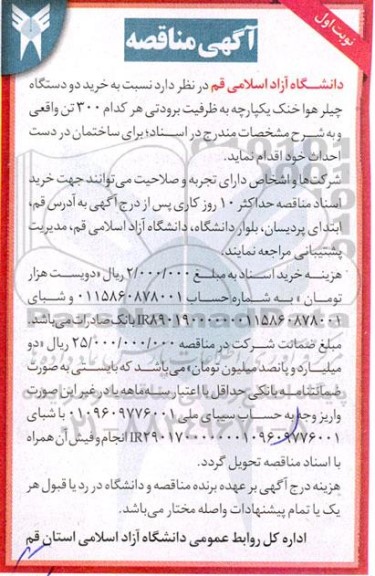 نوبت اول
آگهی مناقصه
دانشگاه آزاد اسلامی قم در نظر دارد نسبت به خرید دو دستگاه
چیلر هوا خنک یکپارچه به ظرفیت برودتی هر کدام ۳۰۰ تن واقعی
و به شرح مشخصات مندرج در اسناد؛ برای ساختمان در دست
احداث خود اقدام نماید.
شرکت‌ها و اشخاص دارای تجربه و صلاحیت می‌توانند جهت خرید
اسناد مناقصه حداکثر ۱۰ روز کاری پس از درج آگهی به آدرس قم،
ابتدای پردیسان، بلوار دانشگاه، دانشگاه آزاد اسلامی قم، مدیریت
پشتیبانی مراجعه نمایند.
هزینه خرید اسناد به مبلغ ۲/۰۰۰/۰۰۰ ریال «دویست هزار
تومان» به شماره حساب ۰۱۱۵۸۶۰۸۷۸۰۰۱ و شبای
بانک صادرات می‌باشد.
مبلغ ضمانت شرکت در مناقصه ۲۵/۰۰۰/۰۰۰/۰۰۰ ریال «دو
میلیارد و پانصد میلیون تومان» می‌باشد که بایستی به صورت
ضمانتنامه بانکی حداقل با اعتبار سه ماهه یا در غیر این صورت
واریز وجه به حساب سیبای ملی ۰۱۰۹۶۰۹۷۷۶۰۰۱ با شبای
انجام و فیش آن همراه
با اسناد مناقصه تحویل گردد.
هزینه درج آگهی بر عهده برنده مناقصه و دانشگاه در رد یا قبول هر
یک یا تمام پیشنهادات واصله مختار می‌باشد.
اداره کل روابط عمومی دانشگاه آزاد اسلامی استان قم